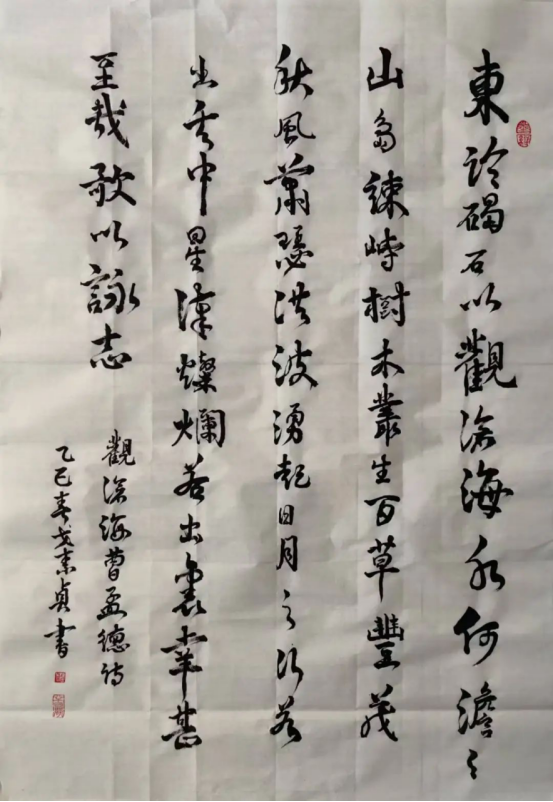 東臨碣石以觀滄海水何澹々
山島竦峙樹木叢生百草豐茂
秋風蕭瑟洪波湧起日月之行若
出其中星漢燦爛若出裏幸甚
至哉歌以詠志
觀滄海曹孟德詩
乙巳春戈素貞書